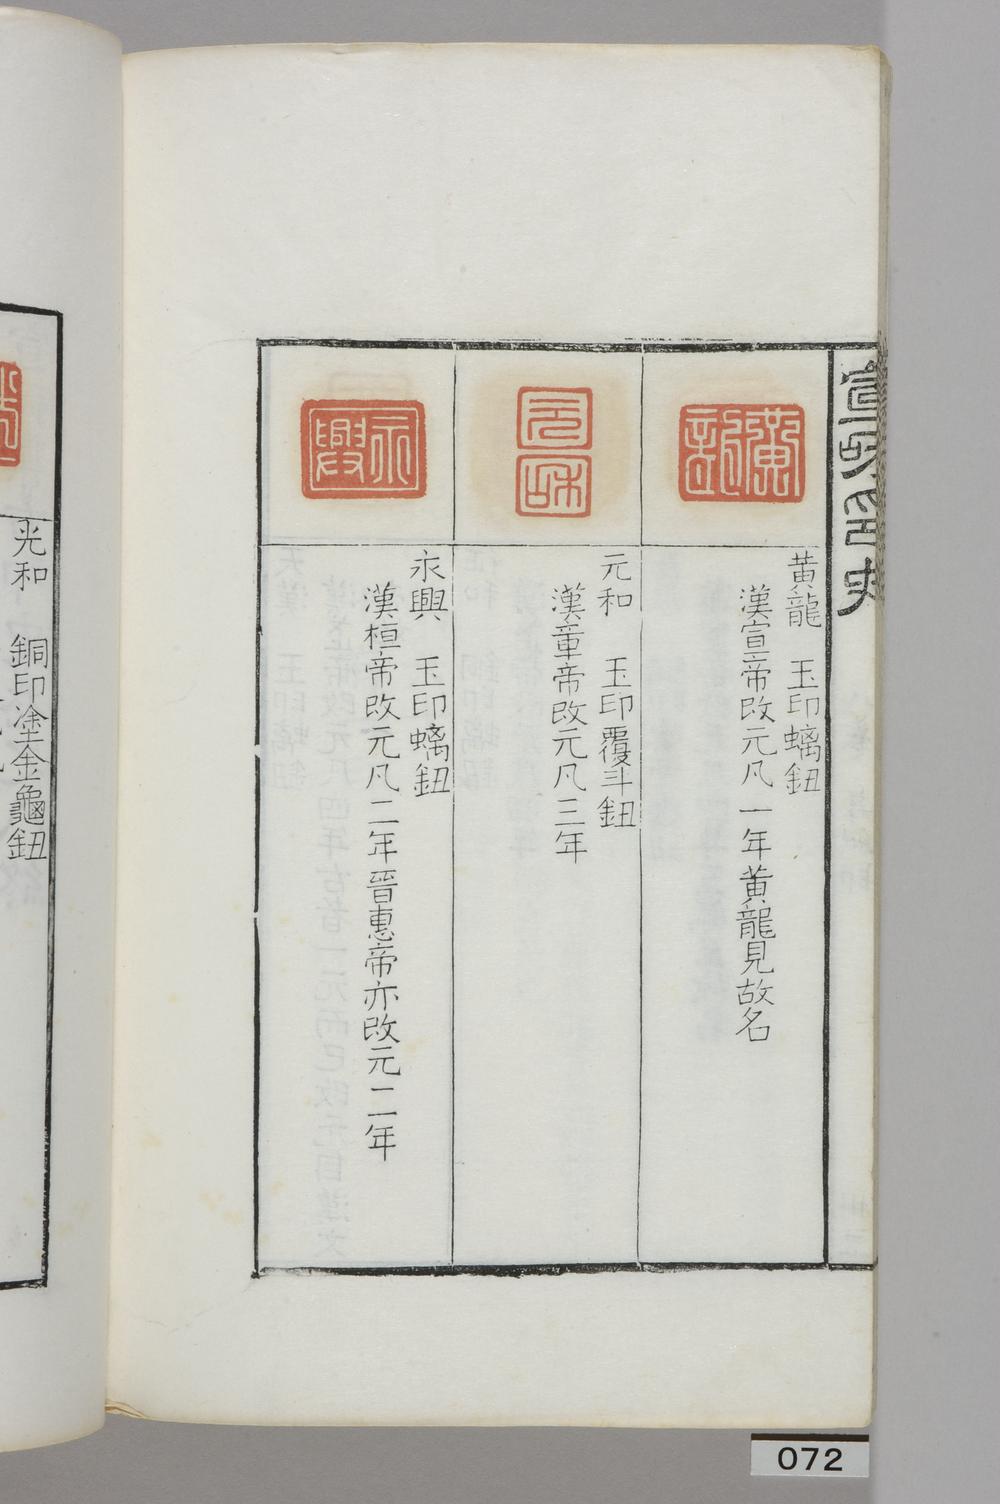 宣和印史
黃龍
黃龍　玉印螭鈕
漢宣帝改元凡一年黃龍見故名
元和
元和　玉印覆斗鈕
漢章帝改元凡三年
永興
永興　玉印螭鈕
漢桓帝改元凡二年晉惠帝亦改元二年
光和　銅印塗金龜鈕
072